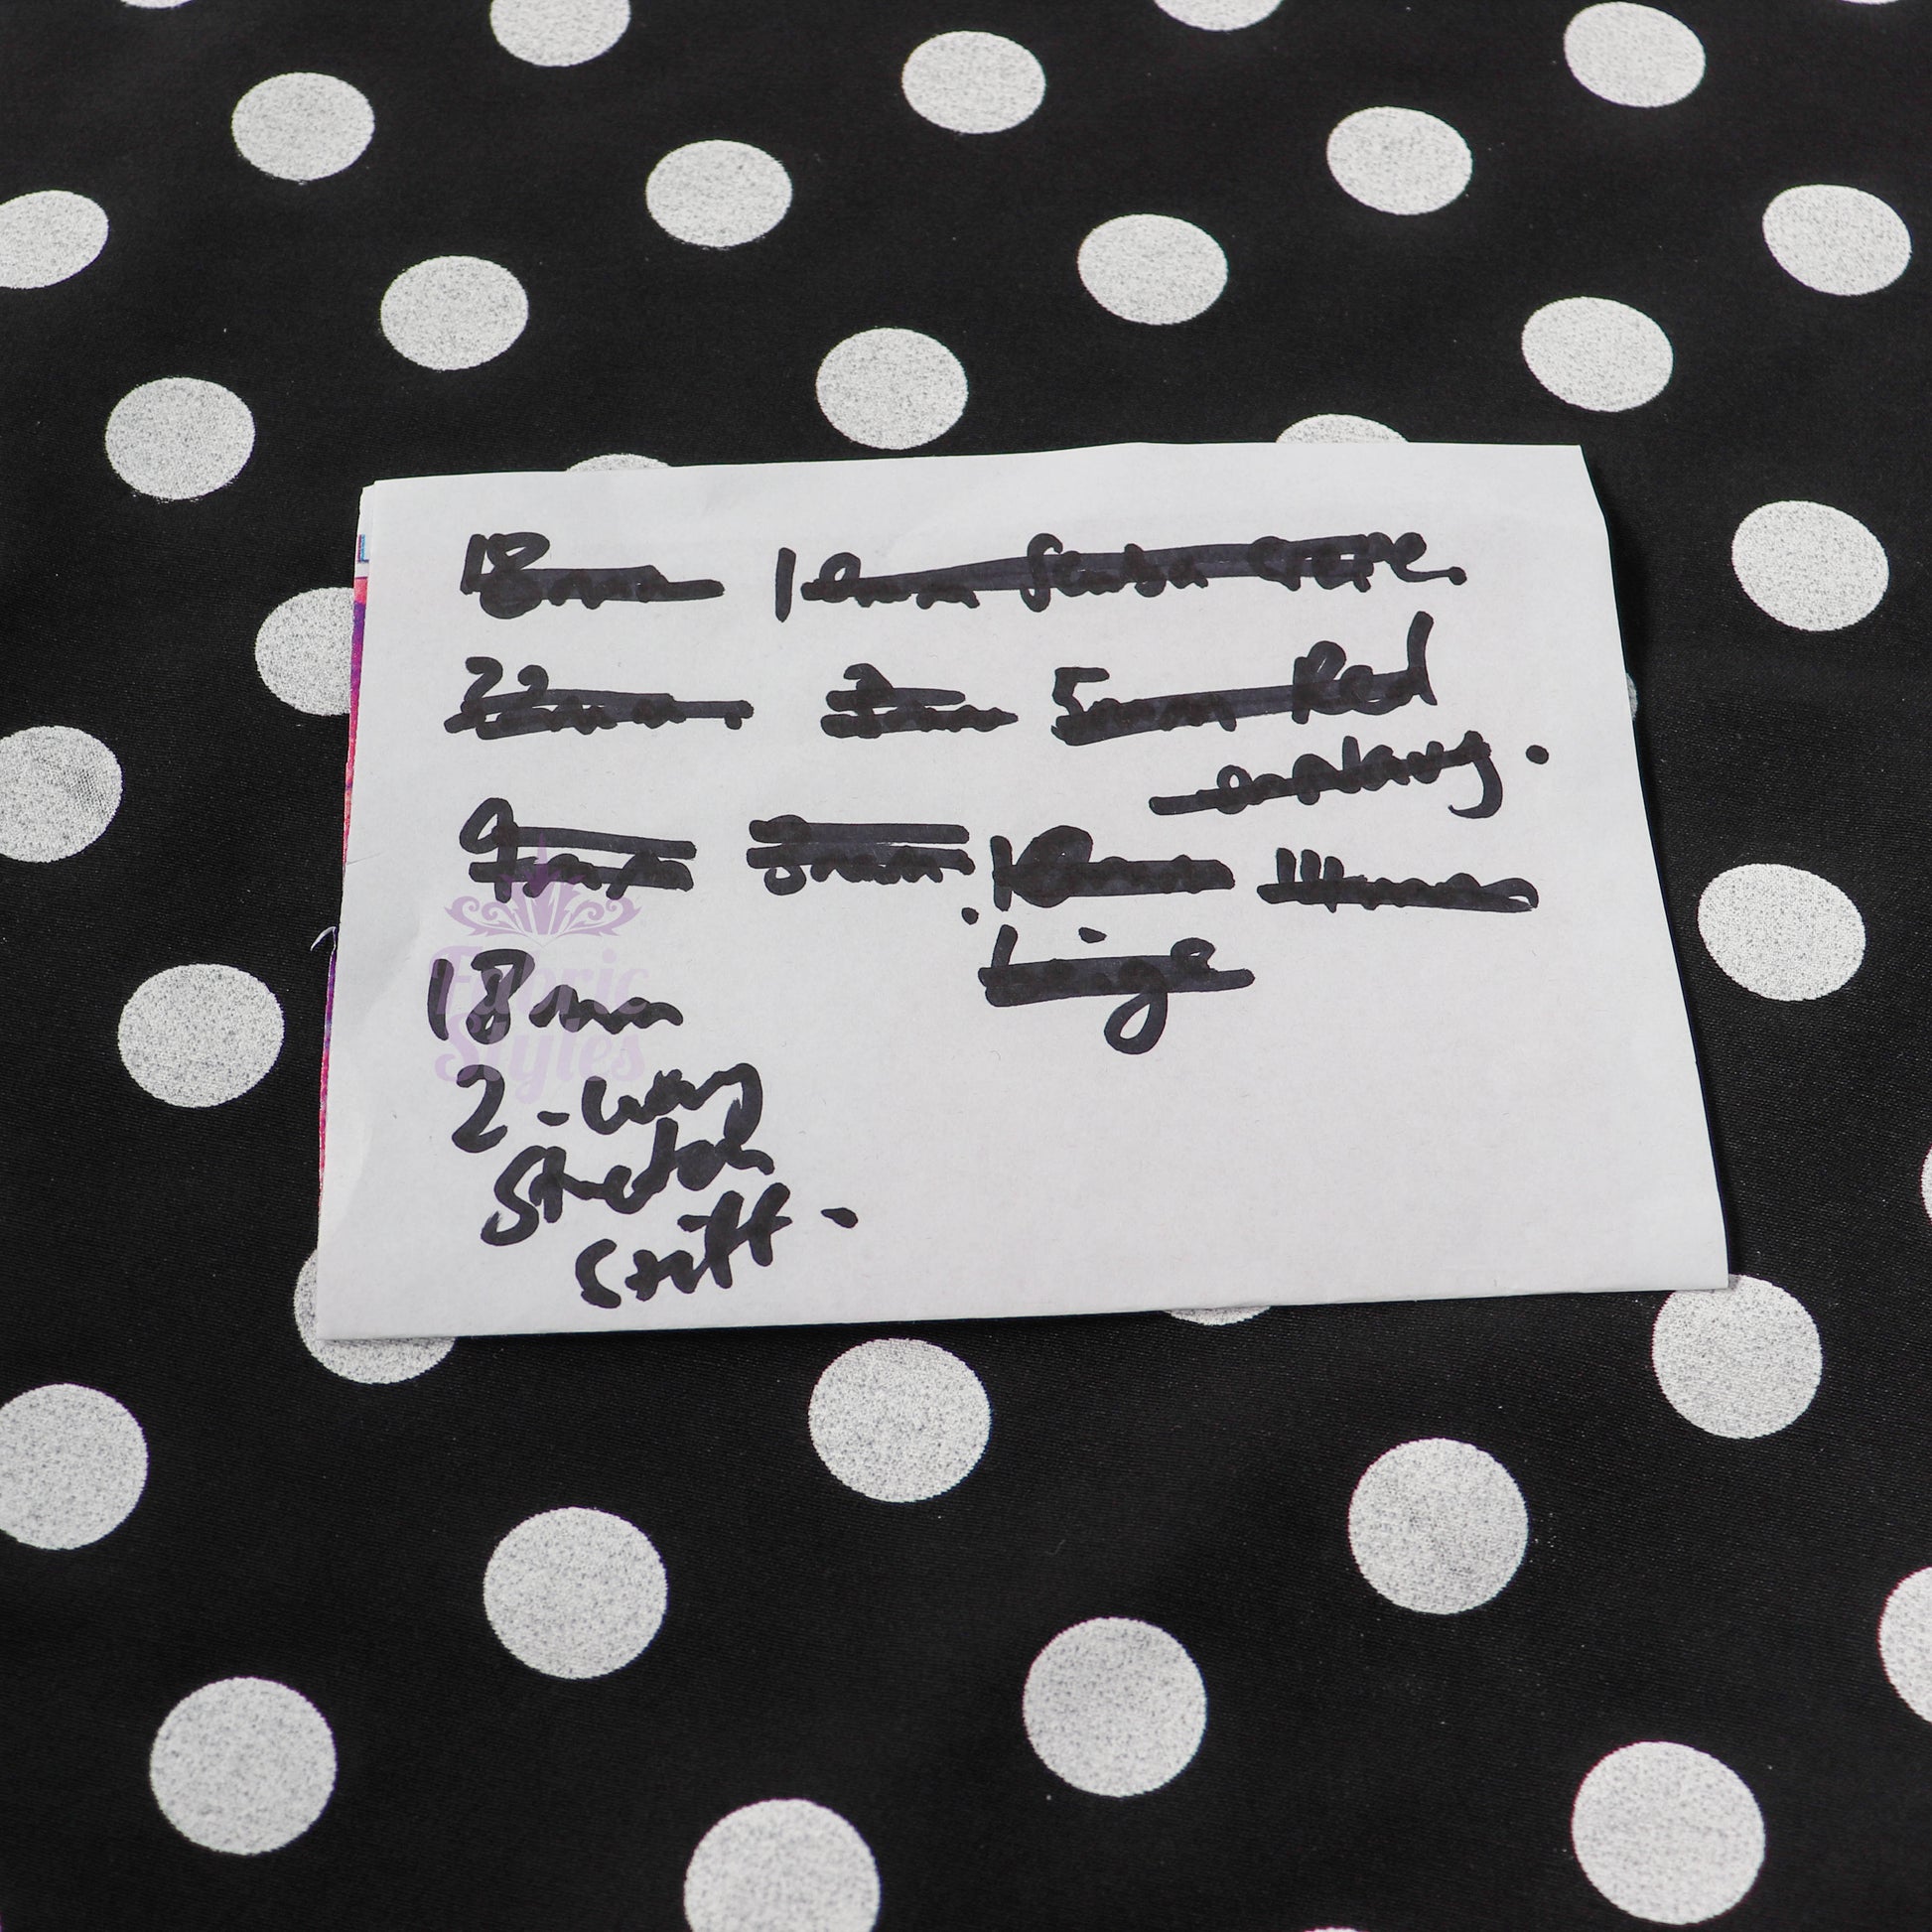 18mm 10mm Scuba Crepe.
22mm. 3mm 5mm Red
9mm 8mm 10mm 14mm
Beige
18mm
2-way
Stretch
Stiff.
Fabric
Styles